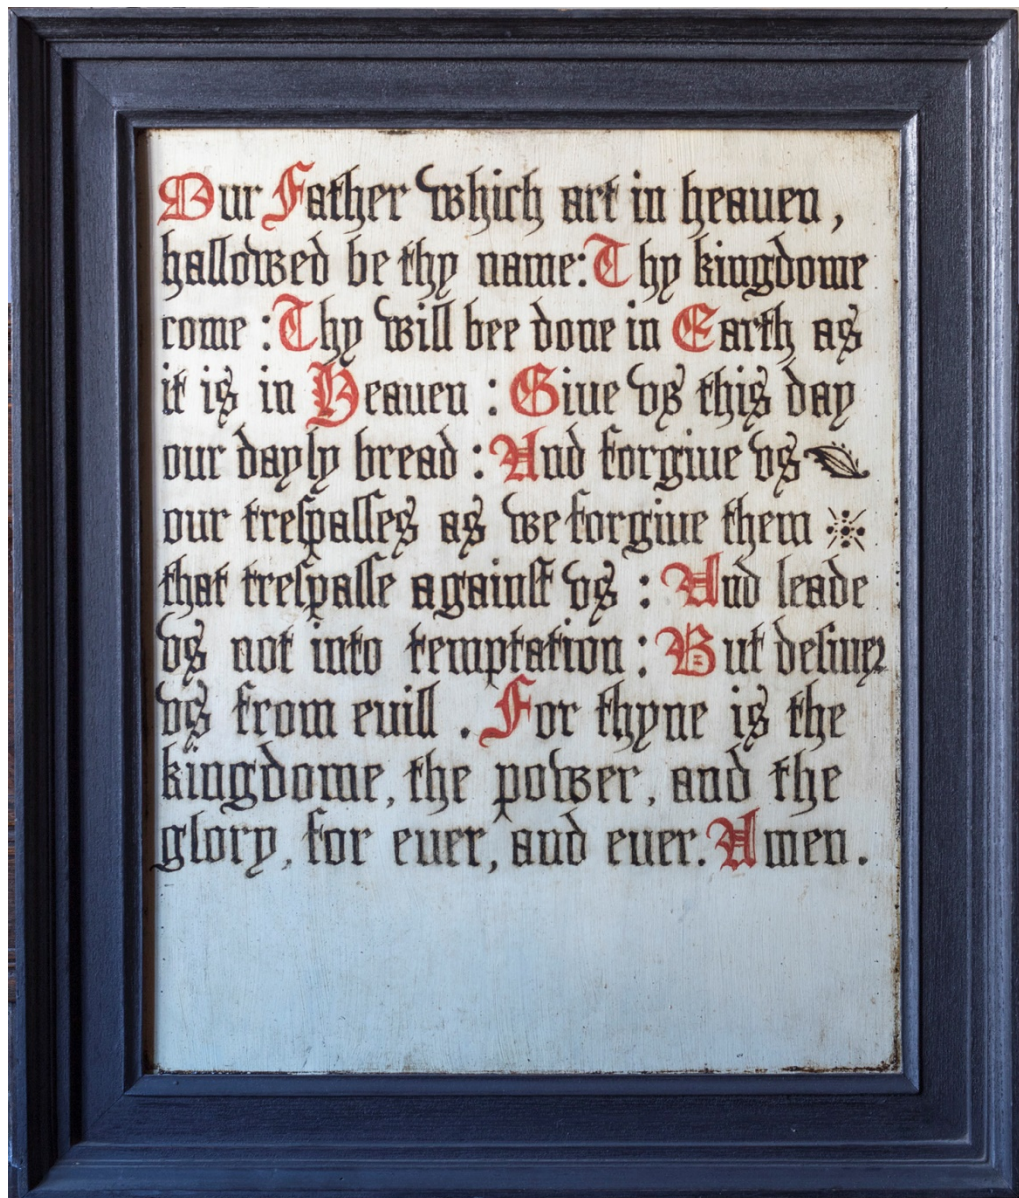 Our Father which art in heauen,
hallowed be thy name: Thy kingdome
come : Thy will bee done in Earth as
it is in Heauen : Giue vs this day
our dayly bread : And forgiue vs
our treſpaſſes as we forgiue them
that treſpaſſe againſt vs : And leade
vs not into temptation : But deliuer
vs from euill . For thyne is the
kingdome, the power, and the
glory, for euer, and euer. Amen.